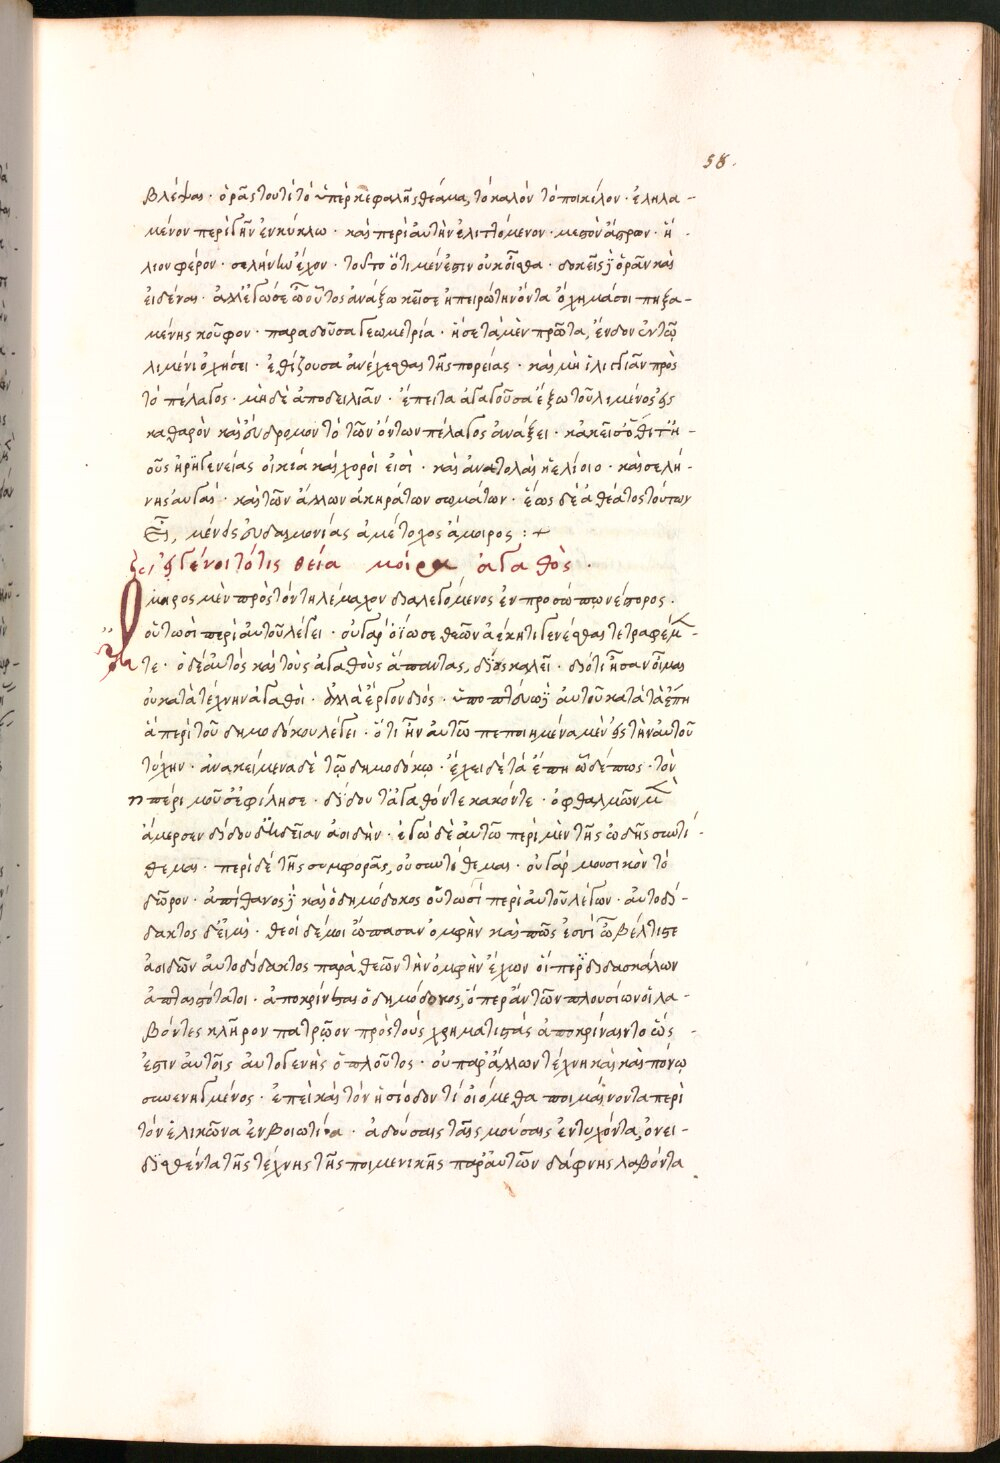 58.
βλέψαι · ὁρᾶς τουτὶ τὸ ὑπὲρ κεφαλῆς θέαμα, τὸ καλὸν τὸ ποικίλον · ἐληλα-
μένον περὶ γῆν ἐν κύκλω · καὶ περὶ αὐτὴν ἑλιττόμενον · μεστὸν ἄστρων · ἥ-
λιον φέρον · σελήνην ἔχον · τοῦτο ὅτι μέν ἐστιν οὐκ οἶσθα · δοκεῖς δὲ ὁρᾶν καὶ
εἰδέναι · ἀλλ' ἐγώ σε ὦ οὗτος ἀνάξω κεῖσε ἠπειρώτην ὄντα ὄχημά σοι πηξα-
μένης κοῦφον · παραδοῦσα γεωμετρία · ἥ σε τὰ μὲν πρῶτα, ἔνδον ἐν τῷ
λιμένι ὀχήσει · ἐθίζουσα ἀνέχεσθαι τῆς πορείας · καὶ μὴ ἰλιγγιᾶν πρὸς
τὸ πέλαγος · μὴ δὲ ἀποδειλιᾶν · ἔπειτα ἀγαγοῦσα ἔξω τοῦ λιμένος εἰς
καθαρὸν καὶ εὔδρομον τὸ τῶν ὄντων πέλαγος ἀνάξει · κἀκεῖσ ὅθι τ' ἠ-
οῦς ἠριγενείας οἰκία καὶ χοροί εἰσὶ · καὶ ἀνατολαὶ ἠελίοιο · καὶ σελή-
νης αὐγαί · καὶ τῶν ἄλλων ἀκηράτων σωμάτων · ἕως δὲ ἀθέατος τούτων
εἶ, μένεις εὐδαιμονίας ἀμέτοχος ἄμοιρος : +
εἰ γένοιτό τις θεία μοίρα ἀγαθὸς ·
Ὅμηρος μὲν πρὸς τὸν τηλέμαχον διαλεγόμενος ἐν προσώπω νέστορος ·
οὑτωσὶ περὶ αὐτοῦ λέγει · οὐ γὰρ ὀΐω σε θεῶν ἀέκητι γενέσθαι τετραφέμ-
τε · ὁ δὲ αὐτὸς καὶ τοὺς ἀγαθοὺς ἅπαντας, δίους καλεῖ · διότι ἦσαν οἶμαι
οὐ κατὰ τέχνην ἀγαθοὶ · ἀλλὰ ἔργον διός · ὑποπτεύω δὲ αὐτοῦ κατὰ τὰ ἔπη
ἃ περὶ τοῦ δημοδόκου λέγει · ὅτι ἦν αὐτῶ πεποιημένα μὲν εἰς τὴν αὐτοῦ
τύχην · ἀνακείμενα δὲ τῷ δημοδόκῳ · ἔχει δὲ τὰ ἔπη ὧδέ πως · τὸν
πέρι μοῦσ' ἐφίλησε · δίδου τ' ἀγαθόν τε κακόν τε · ὀφθαλμῶν μ
ἄμερσεν δίδου δ' ἡδεῖαν ἀοιδὴν · ἐγὼ δὲ αὐτῶ περὶ μὲν τῆς ὠδῆς συντί-
θεμαι · περὶ δὲ τῆς συμφορᾶς, οὐ συντίθεμαι · οὐ γὰρ μουσικὸν τὸ
δῶρον · ἀπίθανος δὲ καὶ ὁ δημόδοκος οὑτωσὶ περὶ αὐτοῦ λέγων · αὐτοδί-
δακτος δ' εἰμὶ · θεοὶ δέ μοι ὤπασαν ὀμφὴν καὶ πῶς ἐστὶ ὦ βέλτιστε
ἀοιδῶν αὐτοδίδακτος παρὰ θεῶν τὴν ὀμφὴν ἔχων οἵπερ διδασκάλων
ἀπταιστότατοι · ἀποκρίναιτ' ἂν ὁ δημόδοκος, ὅπερ ἂν τῶν πλουσίων οἱ λα-
βόντες κλῆρον πατρῷον πρὸς τοὺς χρηματιστὰς ἀποκρίναιντο ὥς
ἐστιν αὐτοῖς αὐτογενὴς ὁ πλοῦτος · οὐ παρ' ἄλλων τέχνη καὶ καὶ πόνῳ
συνενηγμένος · ἐπεὶ καὶ τὸν ἡσίοδον τί οἰόμεθα ποιμαίνοντα περὶ
τὸν ἑλικῶνα ἐν βοιωτία · ἀδούσαις ταῖς μούσαις ἐντυχόντα, ὀνει-
δισθέντα τῆς τέχνης τῆς ποιμενικῆς παρ' αὐτῶν δάφνης λαβόντα